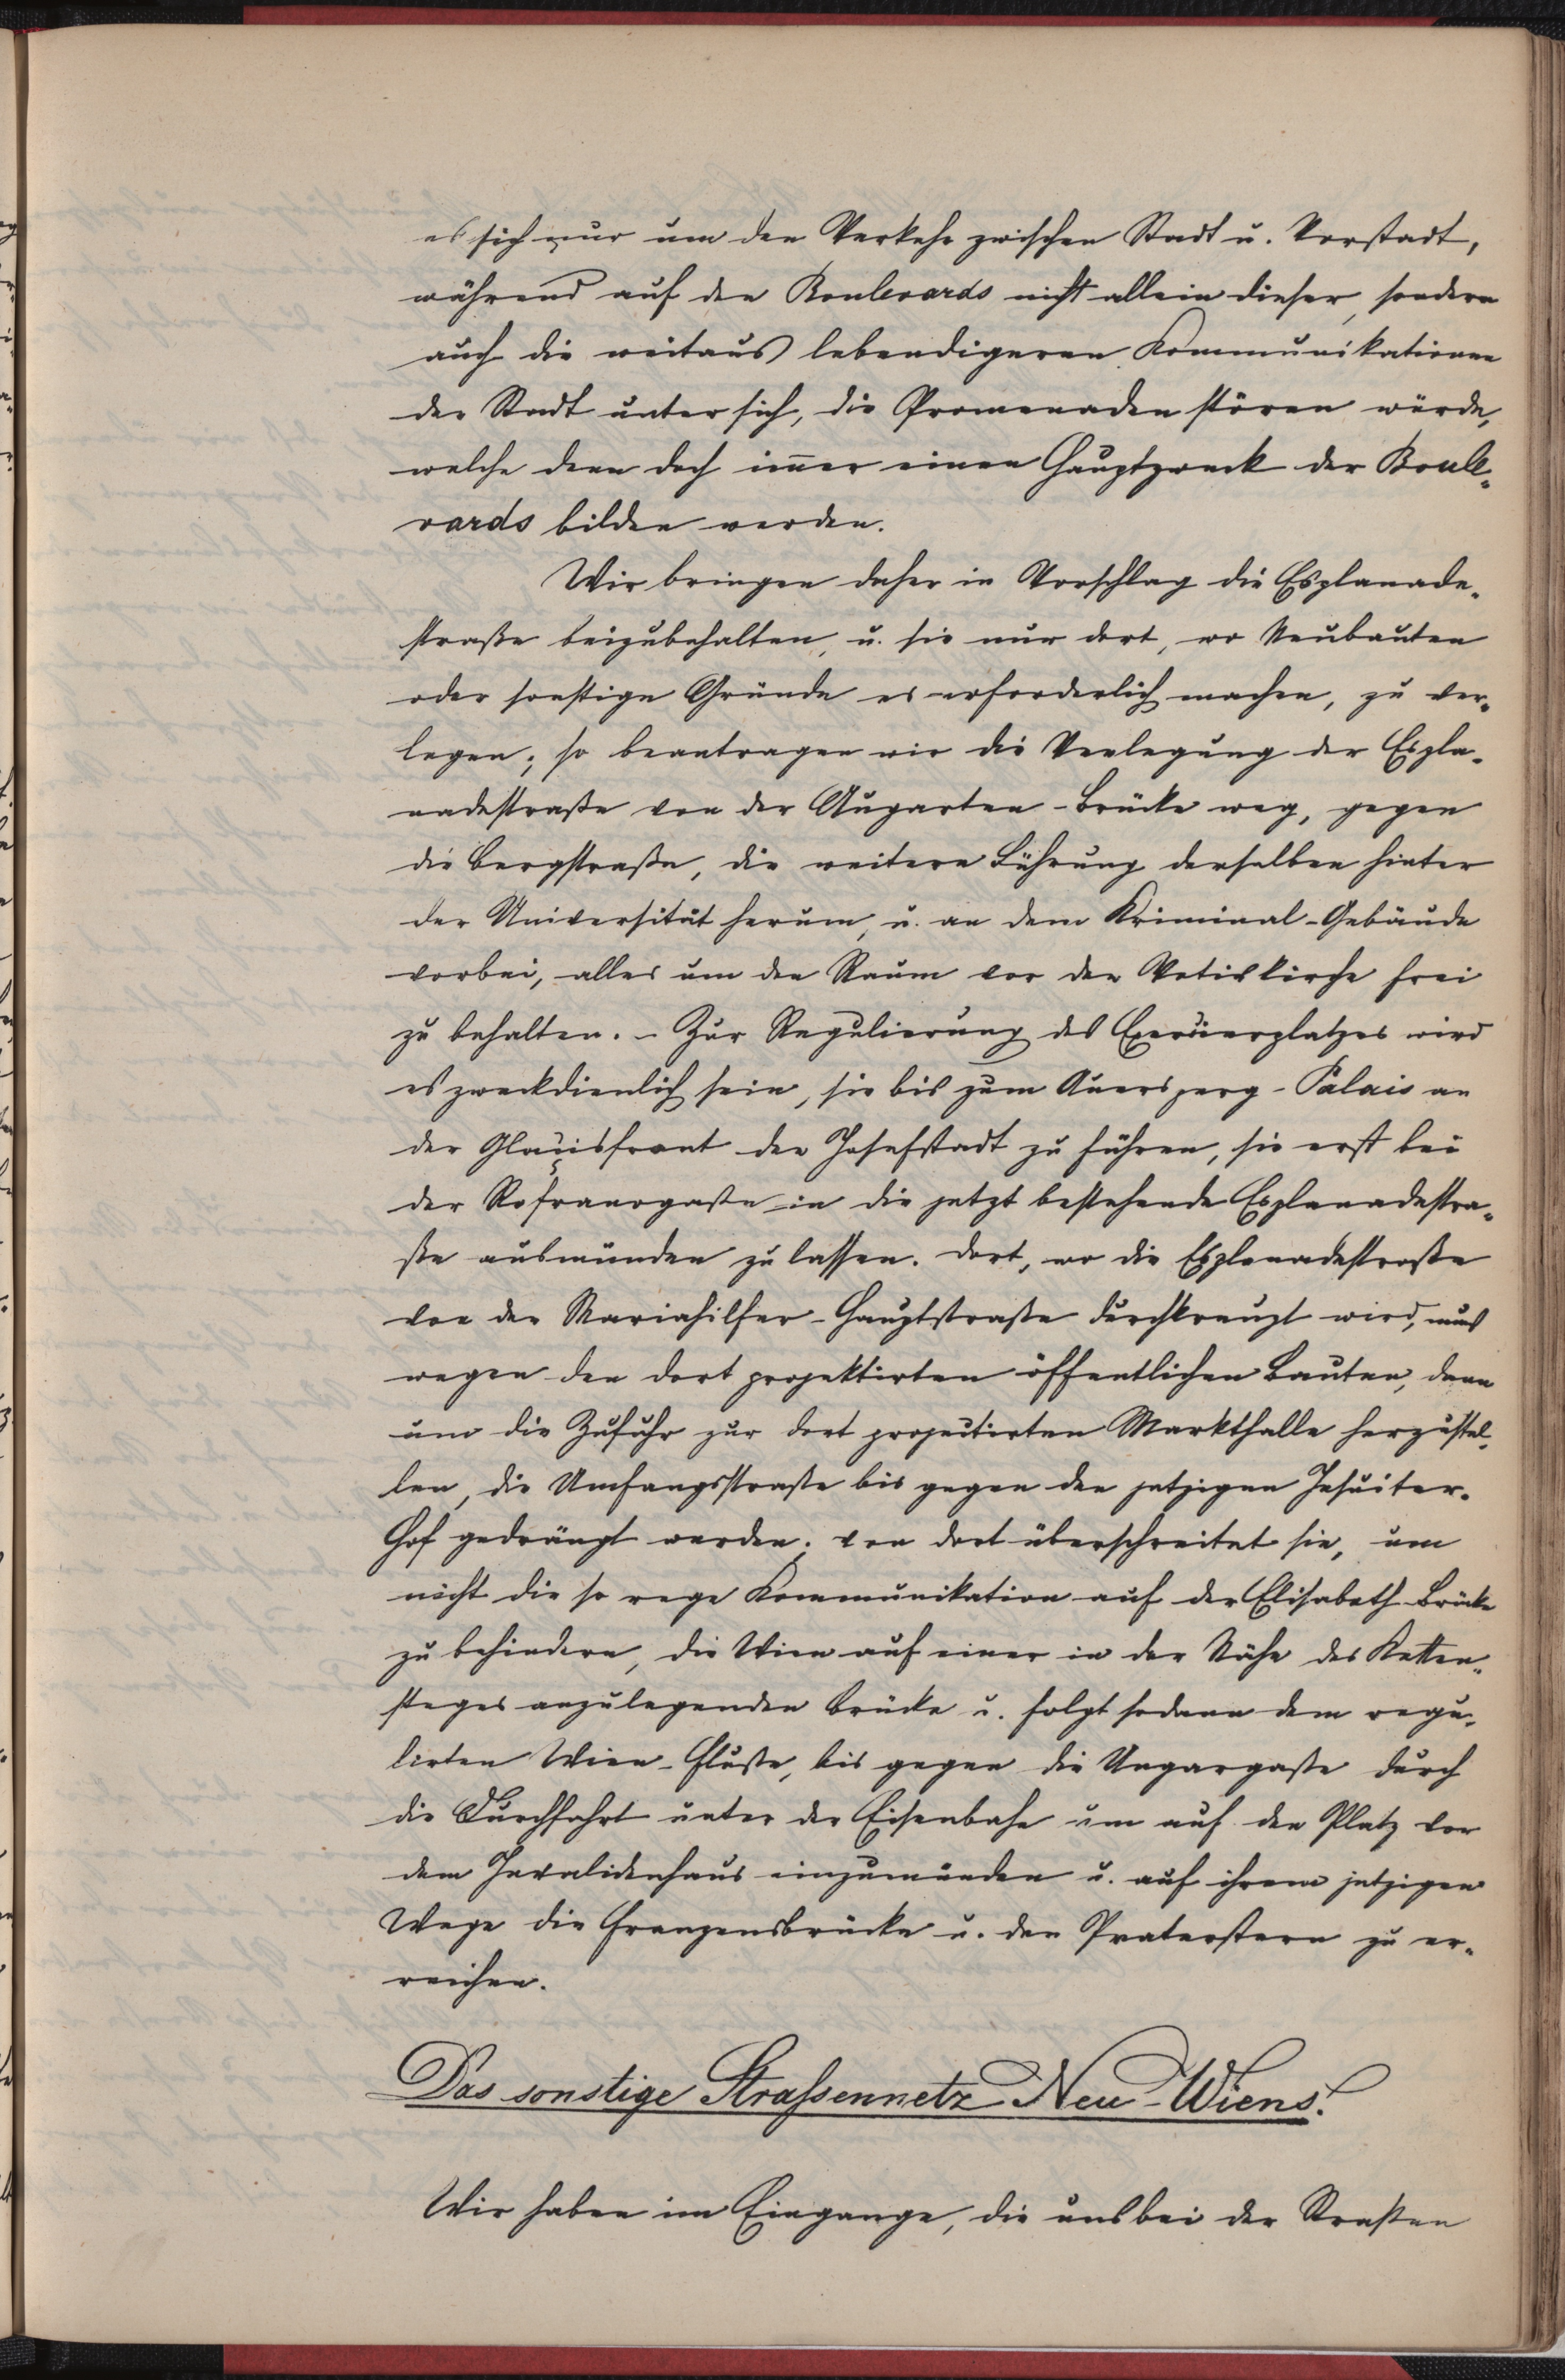 es sich nur um den Verkehr zwischen Stadt u. Vorstadt,
während auf den Boulevards nicht allein dieser, sondern
auch die weitaus lebendigeren Kommunikationen
der Stadt unter sich, die Promenaden stören würde,
welche denn doch im̅er einen Hauptzweck der Boule-
vards bilden werden.
Wir bringen daher in Vorschlag die Esplanade-
straße beizubehalten, u. sie nur dort, wo Neubauten
oder sonstige Gründe es erforderlich machen, zu ver-
legen; so beantragen wir die Verlegung der Espla-
nadestraße von der Augarten-Brücke weg, gegen
die Bergstraße, die weitere Führung derselben hinter
der Universität herum, u. an dem Kriminal-Gebäude
vorbei, alles um den Raum vor der Votivkirche frei
zu behalten. - Zur Regulierung des Exercierplatzes wird
es zweckdienlich sein, sie bis zum Auersperg-Palais an
der Glacisfront der Josefstadt zu führen, sie erst bei
der Rofranogaße in die jetzt bestehende Esplanadestra-
ße ausmünden zu lassen. Dort, wo die Esplanadestraße
von der Mariahilfer-Hauptstraße durchkreuzt wird, muß
wegen den dort projektirten öffentlichen Bauten, dann
um die Zufuhr zur dort projectirten Markthalle herzustel-
len, die Umfangsstraße bis gegen den jetzigen Jesuiter-
Hof gedrängt werden; von dort überschreitet sie, um
nicht die so rege Kommunikation auf der Elisabeth-Brücke
zu behindern, die Wien auf einer in der Nähe des Ketten-
steges anzulegenden Brücke u. folgt sodann dem regu-
lirten Wien-Fluße, bis gegen die Ungargaße durch
die Durchfahrt unter der Eisenbahn um auf den Platz vor
dem Invalidenhaus einzumünden u. auf ihrem jetzigen
Wege die Franzensbrücke u. den Praterstern zu er-
reichen.
Das sonstige Strassennetz Neu-Wiens.
Wir haben im Eingange, die uns bei der Straßen